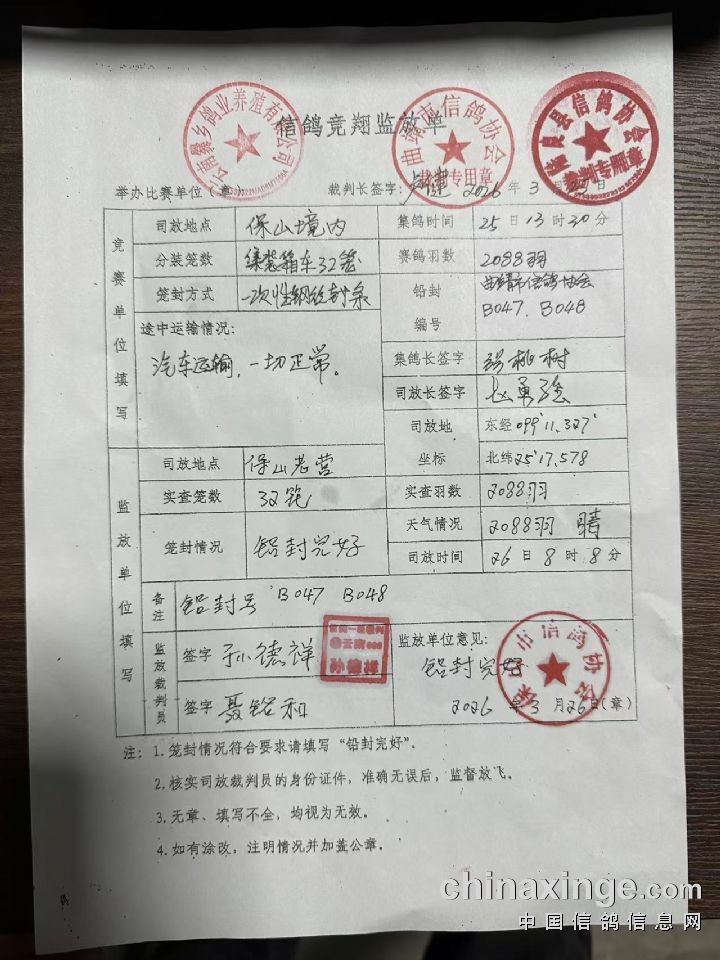 信鸽竞翔监放单
云南爨乡鸽业养殖有限公司
曲靖市信鸽协会
裁判专用章
良县信鸽协会
裁判专用章
举办比赛单位（章）： 裁判长签字： 2026年3月 日
竞赛单位填写
司放地点 保山境内 集鸽时间 25日13时30分
分装笼数 集装箱车32笼 赛鸽羽数 2088羽
笼封方式 一次性钢丝封条 铅封编号 曲靖市信鸽协会
B047、B048
途中运输情况：
汽车运输，一切正常。
集鸽长签字 桃树
司放长签字
司放地坐标 东经099°11.327'
北纬25°17.578
监放单位填写
司放地点 保山老营
实查笼数 32笼 实查羽数 2088羽
笼封情况 铅封完好 天气情况 2088羽 晴
司放时间 26日8时8分
备注 铅封号 B047 B048
监放裁判员
签字 孙德祥
孙德祥
签字 聂铭和
监放单位意见：
铅封完好
保山市信鸽协会
2026年3月26日（章）
注：1.笼封情况符合要求请填写“铅封完好”。
2.核实司放裁判员的身份证件，准确无误后，监督放飞。
3.无章、填写不全，均视为无效。
4.如有涂改，注明情况并加盖公章。
chinaxinge.com
中国信鸽信息网